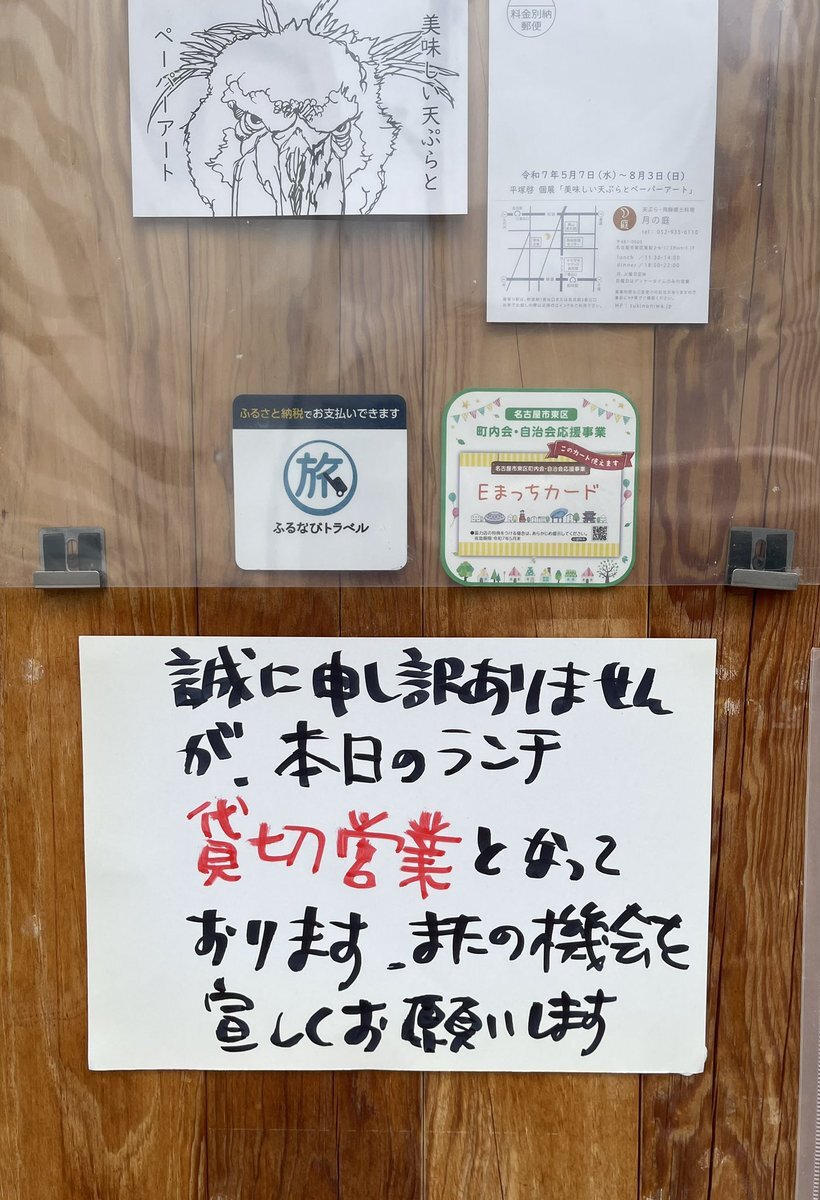 美味しい天ぷらと
ペーパーアート
料金別納
郵便
令和7年5月7日(水)~8月3日(日)
平塚啓 個展「美味しい天ぷらとペーパーアート」
天ぷら・飛騨郷土料理
月の庭
tel: 052-935-6110
lunch / 11:30-14:00
dinner / 18:00-22:00
HP: tukinoniwa.jp
ふるさと納税でお支払いできます
旅
ふるなびトラベル
名古屋市東区
町内会・自治会応援事業
このカード使えます
名古屋市東区町内会・自治会応援事業
Eまっちカード
●協力店の特典をうける場合は、あらかじめ提示してください。
有効期限 令和7年5月末
誠に申し訳ありません
が、本日のランチ
貸切営業となって
おります、またの機会を
宜しくお願いします